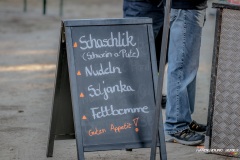 Schaschlik
(Schwein o. Pute)
Nudeln
Soljanka
Fettbemme
Guten Appetit!